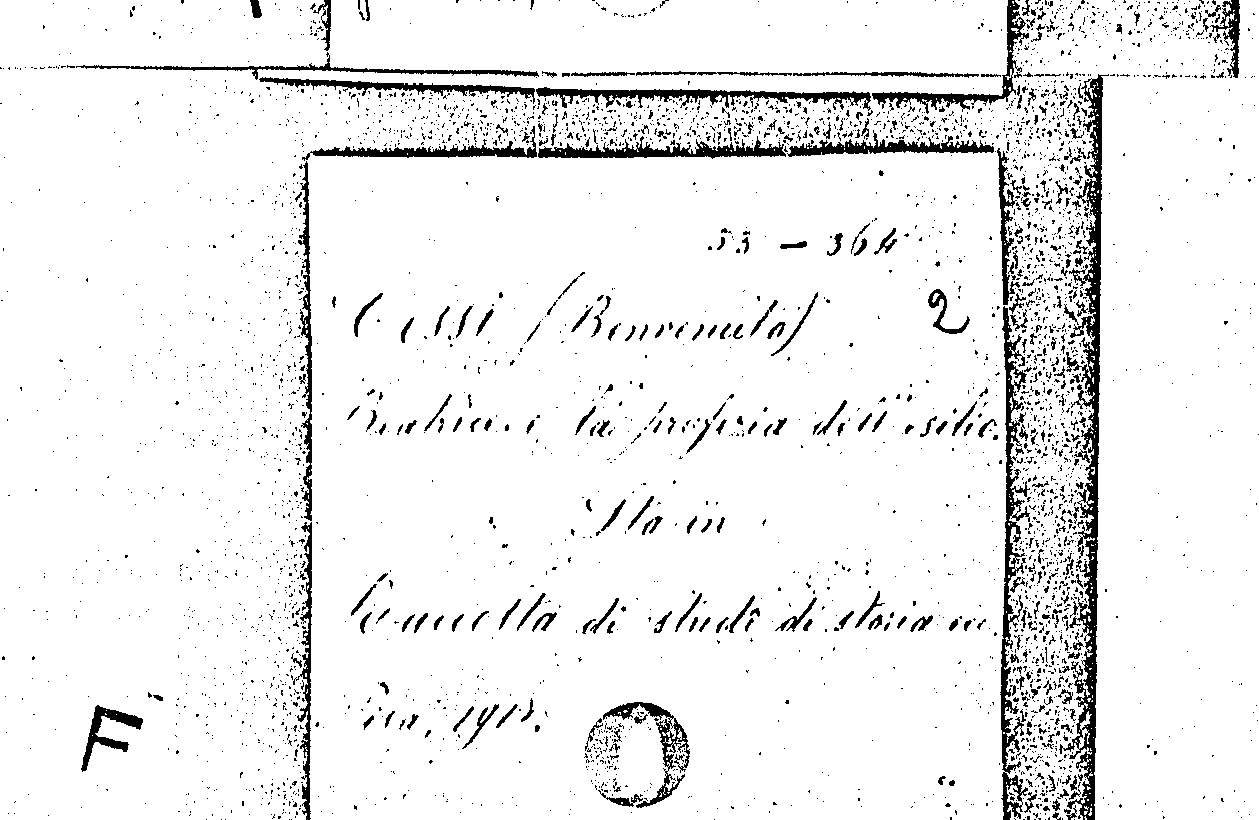 53 - 364
Cessi (Benvenuto) 2
Beatrice e la profezia dell'esilio.
Sta in
Raccolta di studi di storia ecc.
Pisa, 1915.
F